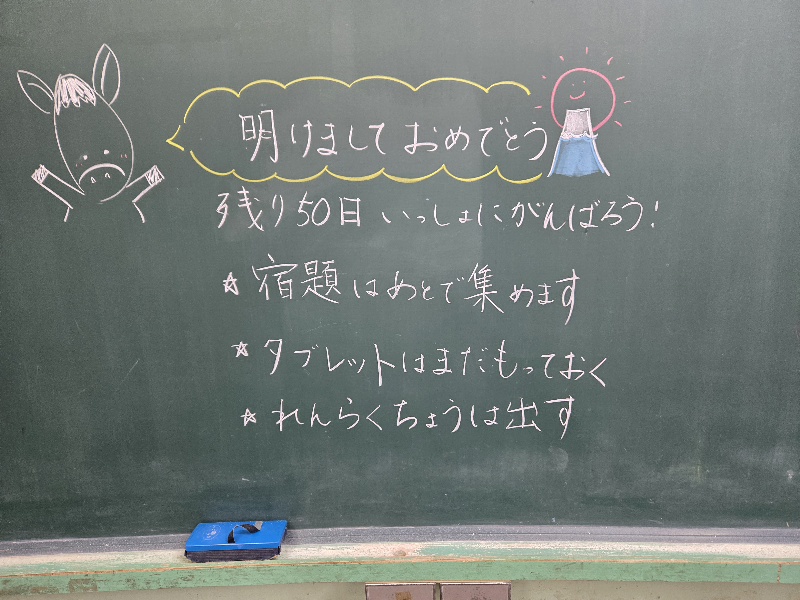 明けましておめでとう
残り50日 いっしょにがんばろう!
☆ 宿題はあとで集めます
☆ タブレットはまだもっておく
☆ れんらくちょうは出す